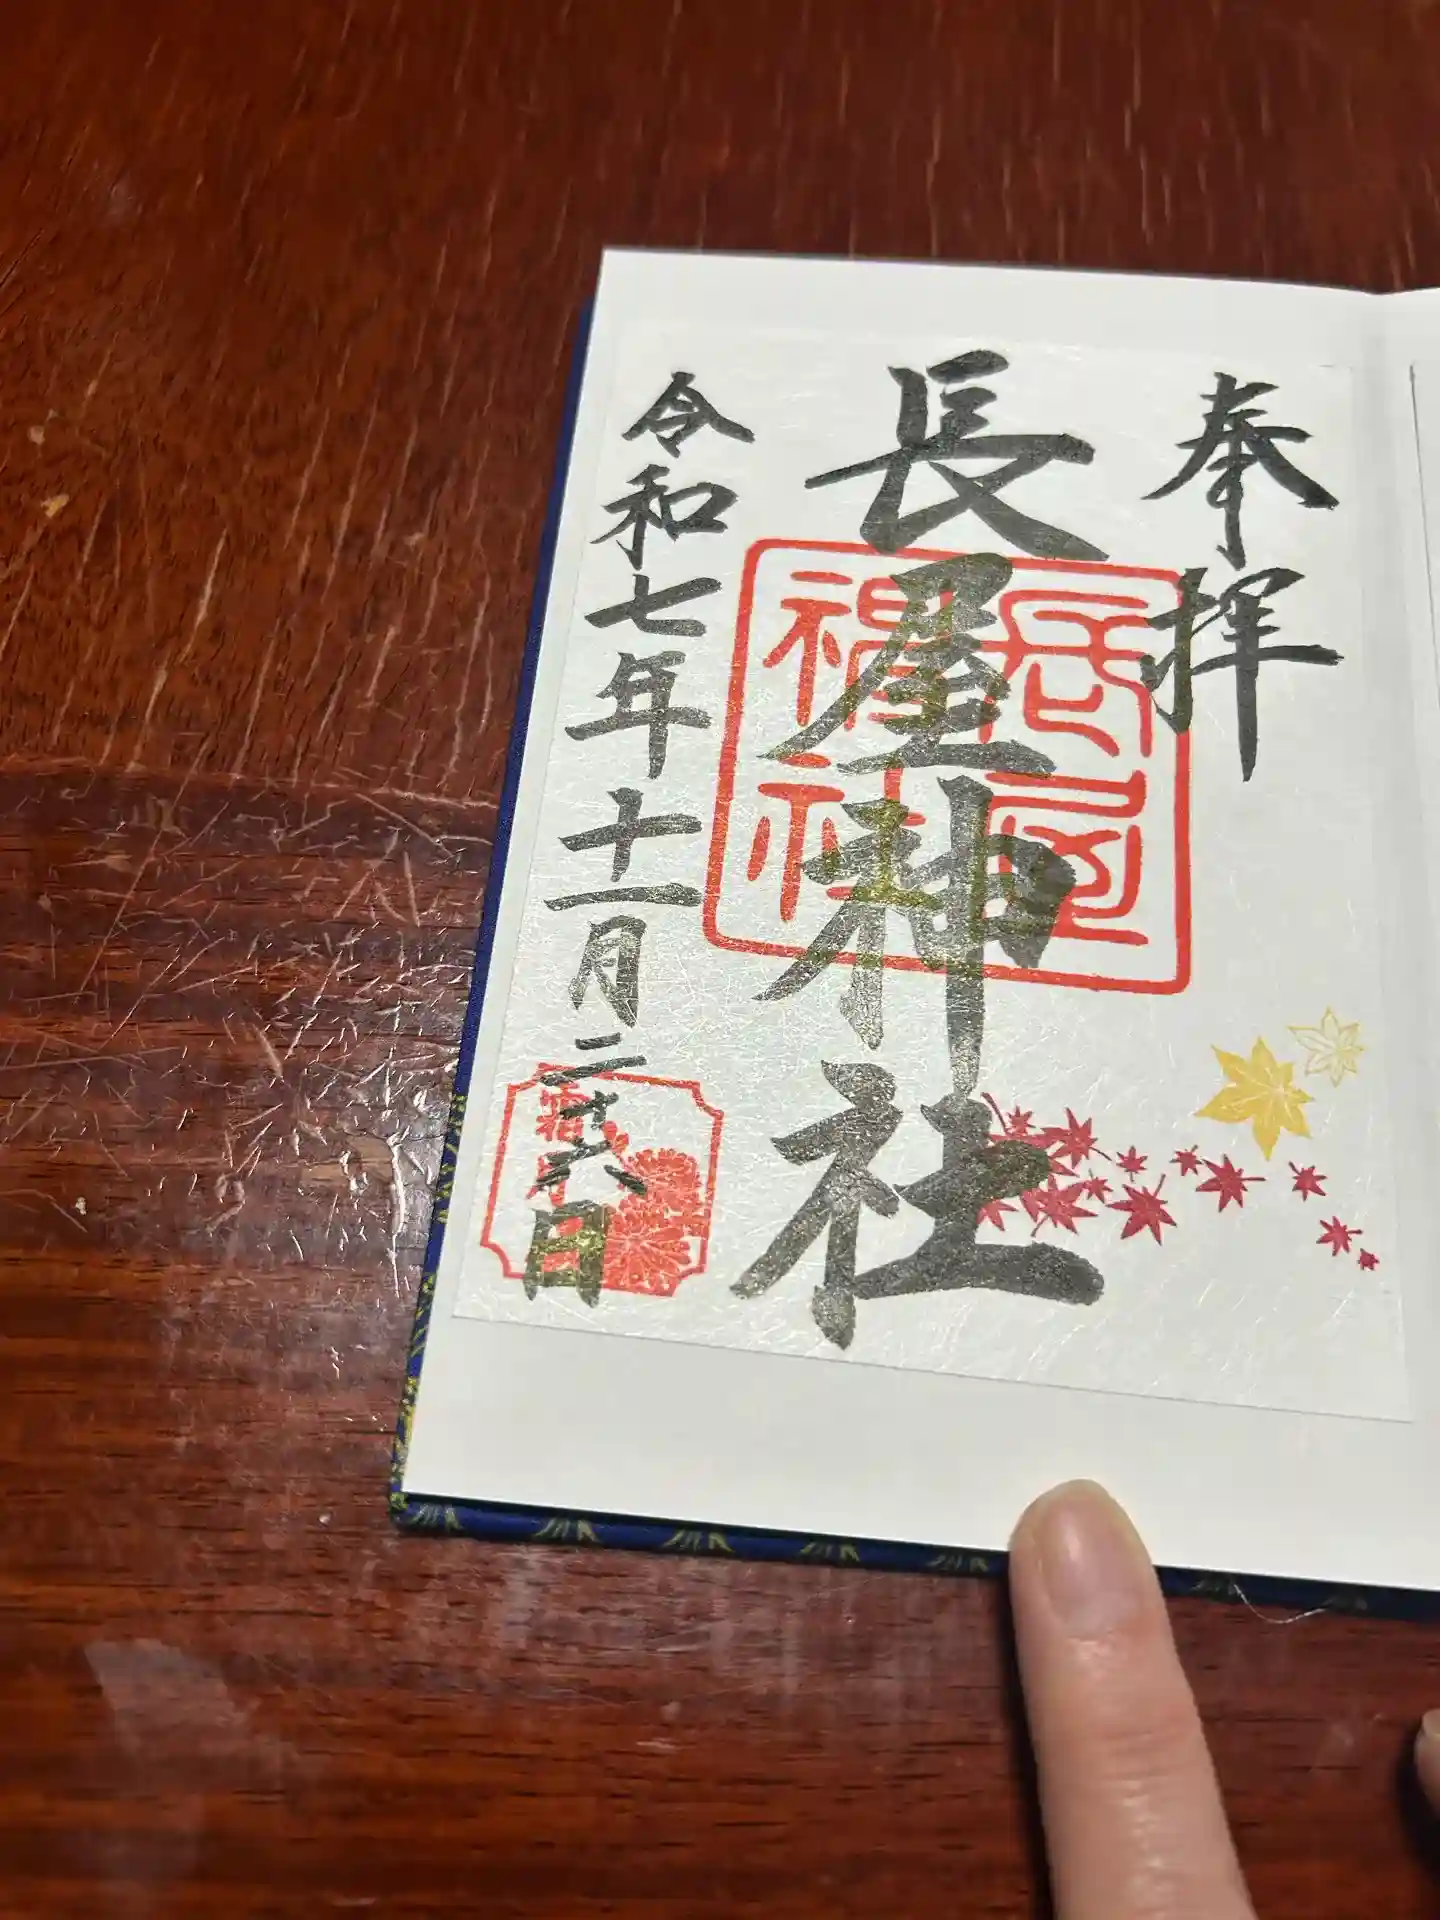 奉拝
長屋神社
長屋
神社
令和七年十一月二十六日
霜月